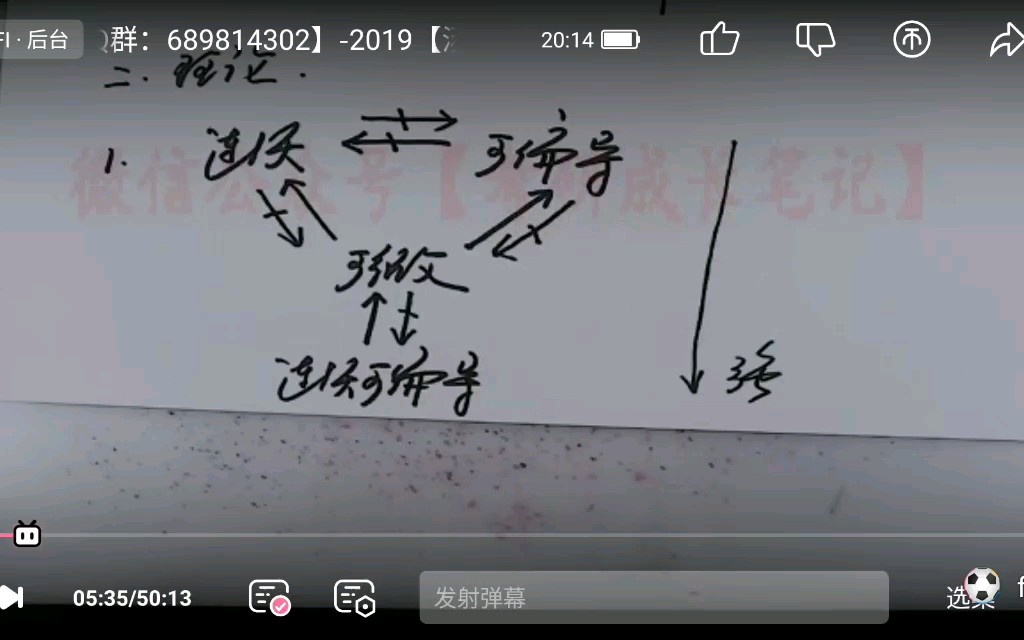 FI · 后台
Q群：689814302】-2019【
20:14
二. 理论.
1. 连续 可偏导
微信公众号【 成长笔记】
可微
连续可偏导
强
05:35/50:13
发射弹幕
选集